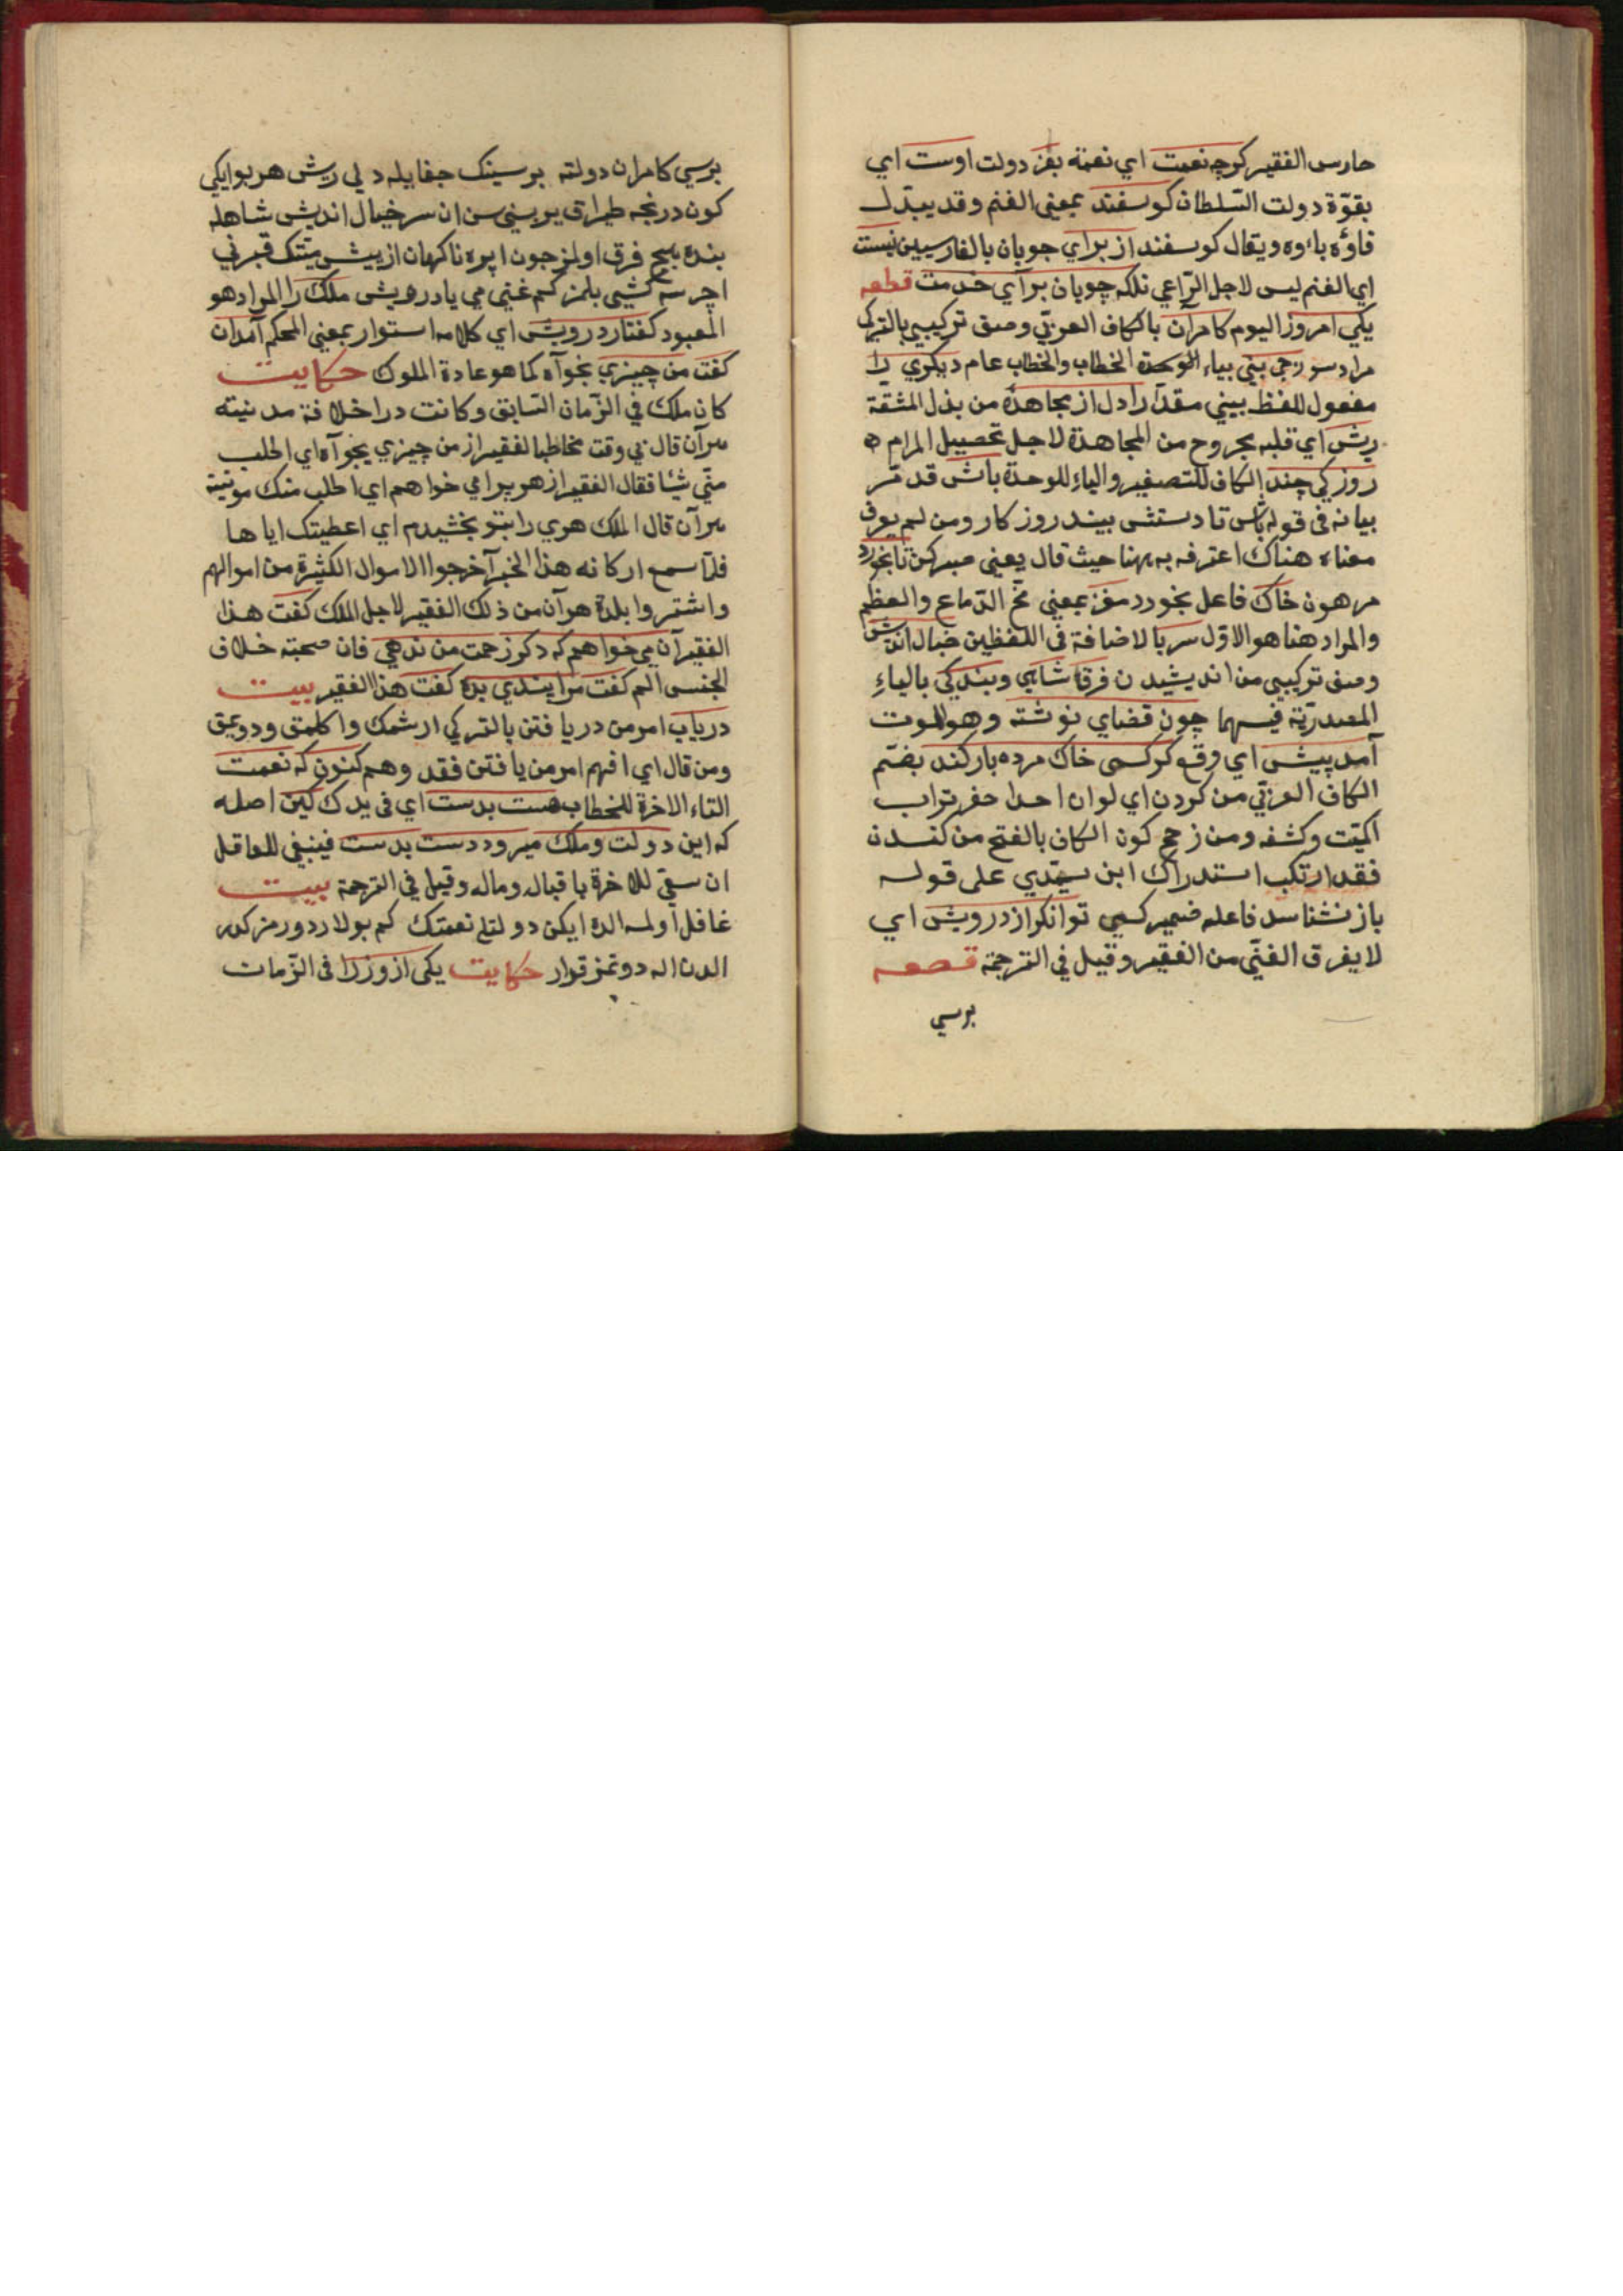 حارس الفقير كرچه نعمت اي نعمته بفر دولت اوست اي
بقوّة دولت السّلطان كوسفند بمعنى الغنم وقد يبدّل
فاؤه باءوه ويقال كوسفند از براي چوپان بالفارسيين نيست
اي الغنم ليس لاجل الرّاعي بلكه چوپان براي خدمت قطعه
يكى امروز اليوم كامران بالكاف العربيّ وصف تركيبي بالتركي
مراد سورجى بيني بياء الوحدة الخطاب والخطاب عام ديكري را
مفعول للفظ بيني مقدّرا دل از مجاهده من بذل المشقة
ريش اي قلبه مجروح من المجاهدة لاجل تحصيل المرام
روزكي چند الكاف للتصغير والياء للوحدة باش قد مرّ
بيانه فى قوله باش تا دستش ببيند روزكار ومن لم يعرف
معناه هناك اعترف به ههنا حيث قال يعنى صبر كن تا بخورد
مرهون خاك فاعل بخورد مغز بمعنى مخّ الدّماغ والعظم
والمراد هنا هو الاوّل سر بالاضافة فى اللفظين خيال انديش
وصف تركيبى من انديشيدن فرق شاهي وبندكي بالياء
المصدريّة فيهما چون قضاي نوشته وهو الموت
آمد پيش اي وقع كر كسى خاك مرده باز كند بضمّ
الكاف العربيّ من كردن اي لو ان احدا حفر تراب
الميّت وكشفه ومن زعم كون الكاف بالفتح من كندن
فقد ارتكب استدراك ابن سيّدي على قوله
باز نشناسد فاعله ضمير كسى توانكر از درويش اي
لا يفرق الغنّي من الفقير وقيل في الترجمة قطعه
برسي
برسي كامران دولته برسينك جفايله دلي ريش هر بو ايكى
كون درنجه طپراق يربينى سن ان سر خيال انديش شاهله
بنده هيچ فرق اولمز چون ايره ناكهان از پيش ميّتك قبرني
اچرسه كشى بلمز كم غني مي يا درويش ملك را المراد هو
المعبود كفتار درويش اي كلامه استوار بمعنى المحكم آمدان
كفت من چيزي بخواه كما هو عادة الملوك حكايت
كان ملك في الزّمان السّابق وكانت دار اخلافة مدينته
قال في وقت مخاطبا لفقير از من چيزي بخواه اي اطلب
منّي شيئا فقال الفقير از هويرا مي خواهم اي اطلب منك
قال الملك هوي را بتو بخشيدم اي اعطيتك اياها
فلمّا سمع اركانه هذا الخبر آخرجوا الاموال الكثيرة من اموالهم
واشتروا بلدة من ذلك الفقير لاجل الملك كفت هذا
الفقير آن مي خواهم كه دكر زحمت من ندهي فان صحبته خلاف
الجنس الم كفت مرا پندي بده كفت هذا الفقير بيت
درياب امر من دريافتن بالتركي ارشمك واكلمق ودويمق
ومن قال اي افهم امر من يافتن فقد وهم كنون كه نعمت
التاء الاخرة للخطاب هست بدست اي فى يدك كين اصله
كه اين دولت وملك ميرود دست بدست فينبغي للعاقل
ان سعى للاخرة باقباله وماله وقيل في الترجمة بيت
غافل اولمه الده ايكن دولتله نعمتك كم بولاردور مز كدر
الدن اله دوتمز قرار حكايت يكى از وزرا فى الزّمان